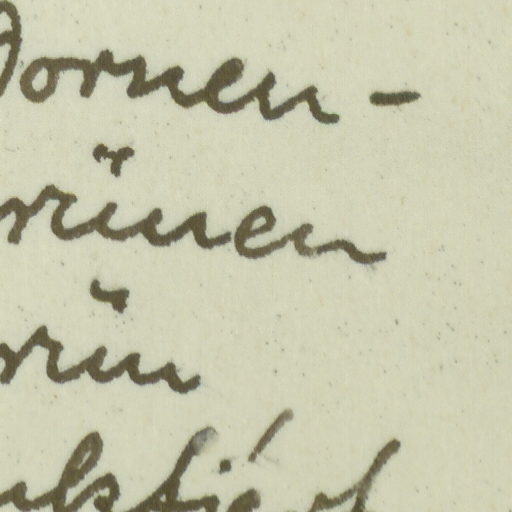 Dornen-
rünen
rün